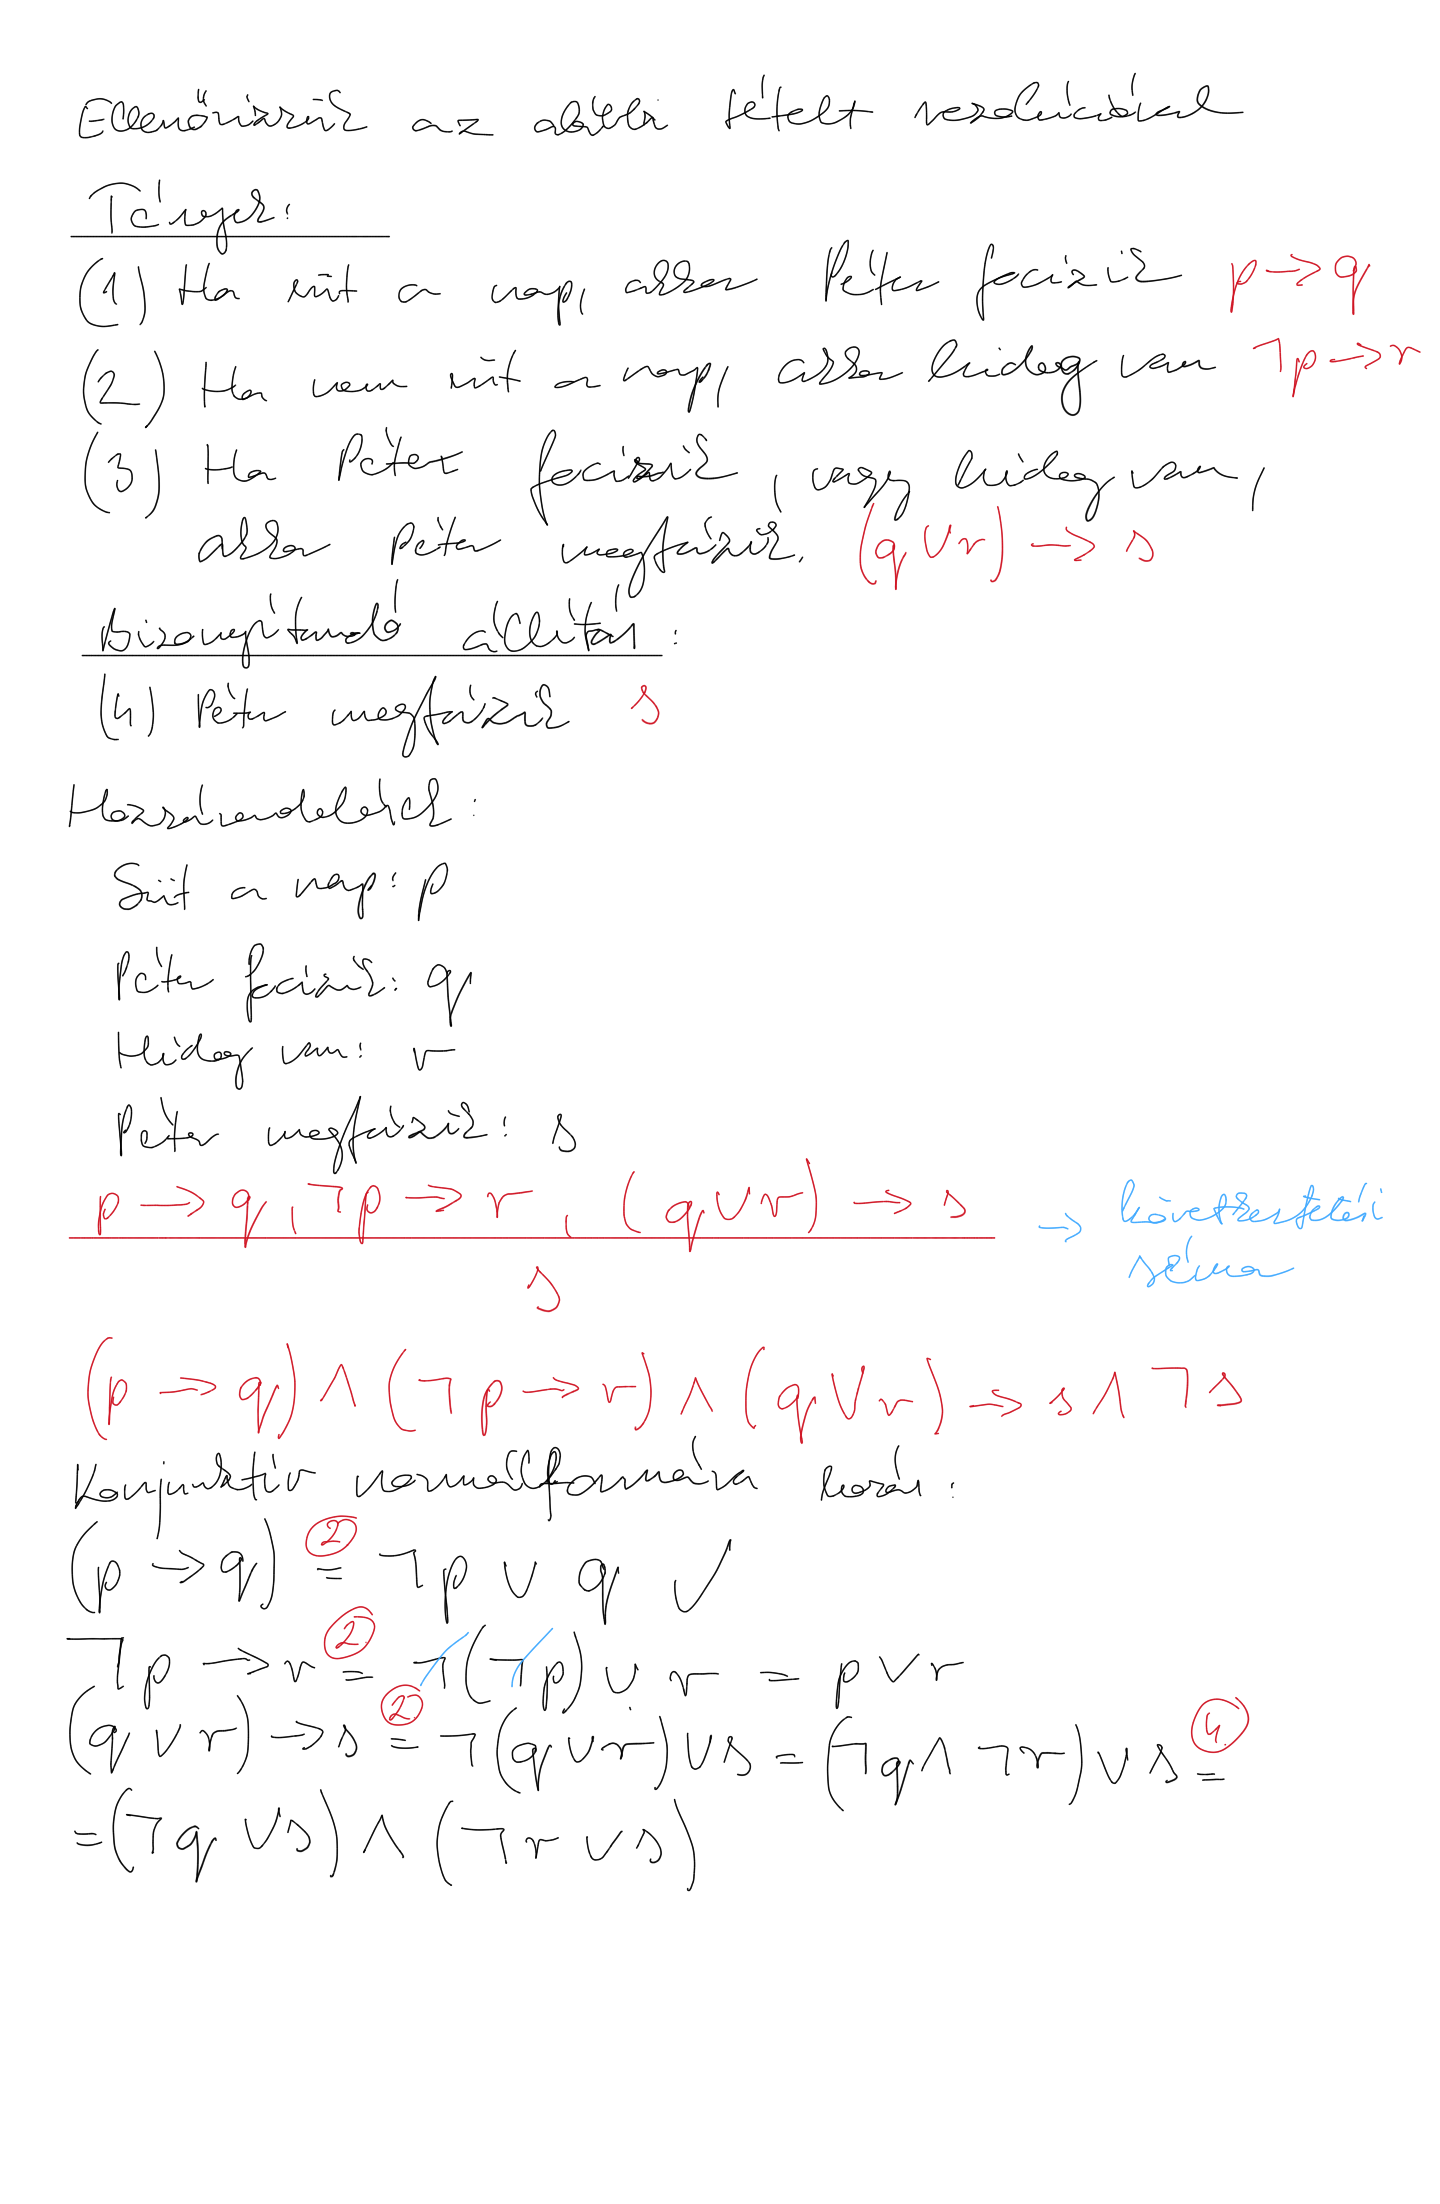 Ellenőrizzük az alábbi tételt rezolúcióval
Tények:
(1) Ha süt a nap, akkor Péter focizik p → q
(2) Ha nem süt a nap, akkor hideg van ¬p → r
(3) Ha Péter focizik, vagy hideg van,
akkor Péter megfázik. (q ∨ r) → s
Bizonyítandó állítás:
(4) Péter megfázik s
Hozzárendelések:
Süt a nap: p
Péter focizik: q
Hideg van: r
Péter megfázik: s
p → q, ¬p → r, (q ∨ r) → s → következtetési
séma
s
(p → q) ∧ (¬p → r) ∧ (q ∨ r) → s ∧ ¬s
Konjunktív normálformára hozás:
(p → q) ②= ¬p ∨ q ✓
¬p → r ②= ¬(¬p) ∨ r = p ∨ r
(q ∨ r) → s ②= ¬(q ∨ r) ∨ s = (¬q ∧ ¬r) ∨ s ④=
= (¬q ∨ s) ∧ (¬r ∨ s)